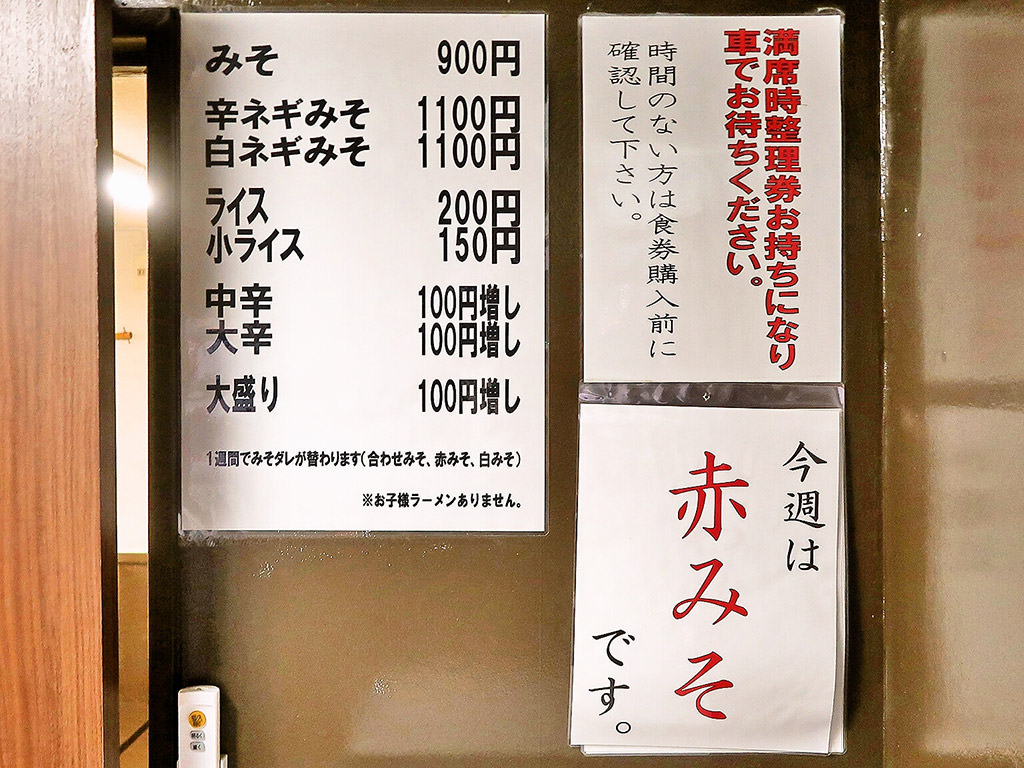 みそ 900円
辛ネギみそ 1100円
白ネギみそ 1100円
ライス 200円
小ライス 150円
中辛 100円増し
大辛 100円増し
大盛り 100円増し
1週間でみそダレが替わります(合わせみそ、赤みそ、白みそ)
※お子様ラーメンありません。
満席時整理券お持ちになり
車でお待ちください。
時間のない方は食券購入前に
確認して下さい。
今週は
赤みそ
です。